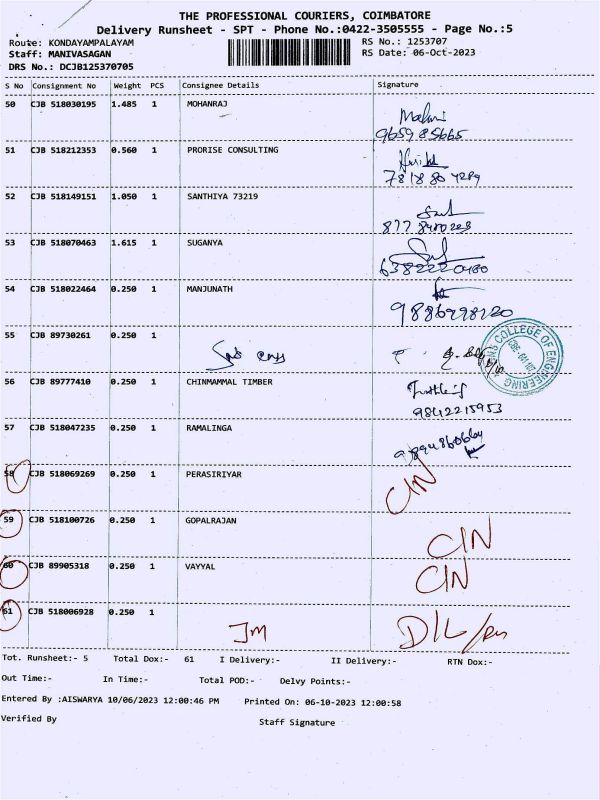 THE PROFESSIONAL COURIERS, COIMBATORE
Delivery Runsheet - SPT - Phone No.:0422-3505555 - Page No.:5
Route: KONDAYAMPALAYAM
RS No.: 1253707
Staff: MANIVASAGAN
RS Date: 06-Oct-2023
DRS No.: DCJB125370705
S No Consignment No Weight PCS Consignee Details Signature
50 CJB 518030195 1.485 1 MOHANRAJ
9659 85665
51 CJB 518212353 0.560 1 PRORISE CONSULTING
52 CJB 518149151 1.050 1 SANTHIYA 73219
53 CJB 518070463 1.615 1 SUGANYA
6382220480
54 CJB 518022464 0.250 1 MANJUNATH
9886998120
55 CJB 89730261 0.250 1
COLLEGE OF ENGINEERING
56 CJB 89777410 0.250 1 CHINMAMMAL TIMBER
9842215953
57 CJB 518047235 0.250 1 RAMALINGA
58 CJB 518069269 0.250 1 PERASIRIYAR
CIN
59 CJB 518100726 0.250 1 GOPALRAJAN
CIN
60 CJB 89905318 0.250 1 VAYYAL
CIN
61 CJB 518006928 0.250 1
JM D/L/
Tot. Runsheet:- 5 Total Dox:- 61 I Delivery:- II Delivery:- RTN Dox:-
Out Time:- In Time:- Total POD:- Delvy Points:-
Entered By :AISWARYA 10/06/2023 12:00:46 PM Printed On: 06-10-2023 12:00:58
Verified By Staff Signature